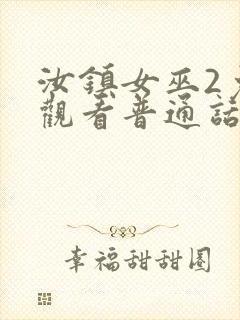 汝鎮女巫2
觀看普通話
幸福甜甜圈